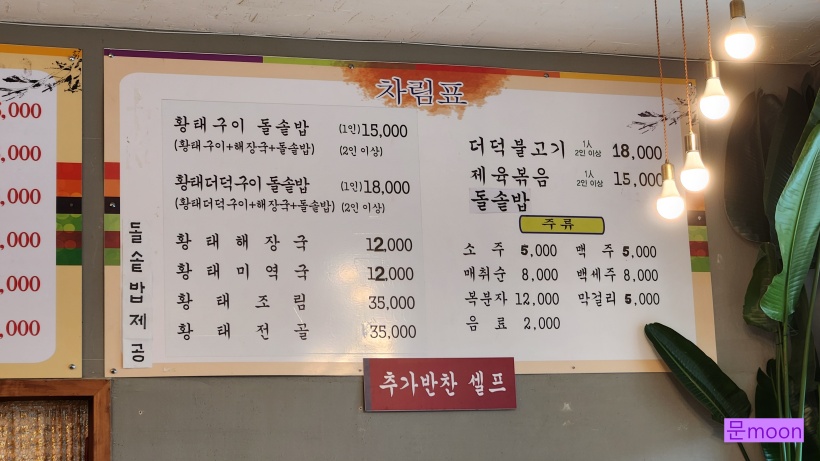 차림표
,000
,000
,000
,000
,000
,000
황태구이 돌솥밥 (1인)15,000
(황태구이+해장국+돌솥밥) (2인 이상)
황태더덕구이 돌솥밥 (1인)18,000
(황태더덕구이+해장국+돌솥밥) (2인 이상)
돌솥밥제공
황태해장국 12,000
황태미역국 12,000
황태조림 35,000
황태전골 35,000
더덕불고기 1人 2인 이상 18,000
제육볶음 1人 2인 이상 15,000
돌솥밥
주류
소주 5,000 맥주 5,000
매취순 8,000 백세주 8,000
복분자 12,000 막걸리 5,000
음료 2,000
추가반찬 셀프
문moon